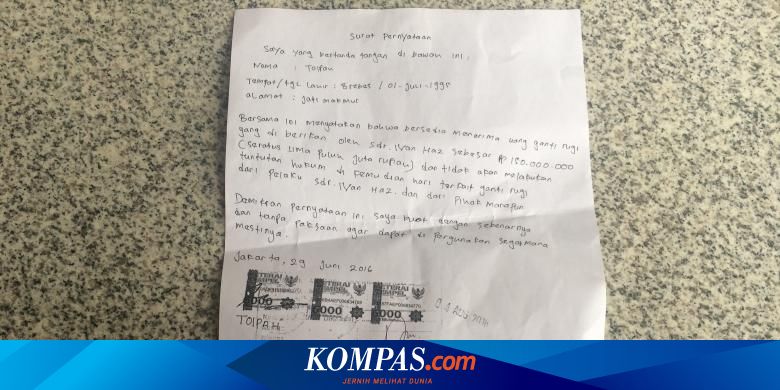 Surat Pernyataan
Saya yang bertanda tangan di bawah ini :
Nama : Toipah
Tempat/tgl Lahir : Brebes / 01-Juli-1995
alamat : Jati makmur
Bersama ini mengatakan bahwa bersedia menerima uang ganti rugi
yang di berikan oleh sdr. Ivan Haz sebesar Rp 150.000.000
(seratus lima puluh juta rupiah) dan tidak akan melakukan
tuntutan hukum di kemudian hari terkait ganti rugi
dari pelaku sdr. Ivan Haz. dan dari pihak manapun
Demikian pernyataan ini saya buat dengan sebenarnya
dan tanpa paksaan agar dapat di pergunakan segaimana
mestinya.
Jakarta, 29 Juni 2016
TERAI TERAI
MPEL
6000 6000
TOIPAH
KOMPAS.com
JERNIH MELIHAT DUNIA